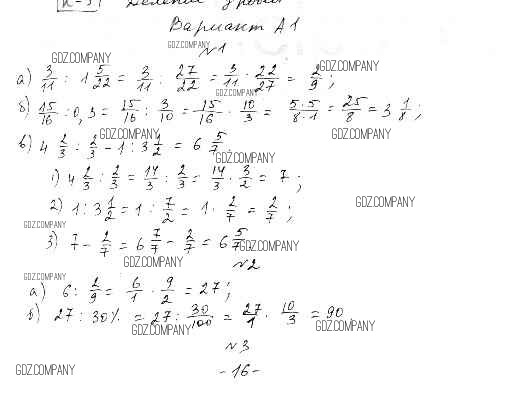 К-5 Деление дробей
Вариант А1
GDZ.COMPANY
№1
GDZ.COMPANY GDZ.COMPANY
а) 3/11 : 1 5/22 = 3/11 : 27/22 = 3/11 · 22/27 = 2/9 ;
GDZ.COMPANY
б) 15/16 : 0,3 = 15/16 : 3/10 = 15/16 · 10/3 = 5·5/8·1 = 25/8 = 3 1/8 ;
GDZ.COMPANY GDZ.COMPANY
в) 4 2/3 : 2/3 - 1 : 3 1/2 = 6 5/7.
GDZ.COMPANY
1) 4 2/3 : 2/3 = 14/3 : 2/3 = 14/3 · 3/2 = 7 ;
GDZ.COMPANY
2) 1 : 3 1/2 = 1 : 7/2 = 1 · 2/7 = 2/7 ;
GDZ.COMPANY
3) 7 - 2/7 = 6 7/7 - 2/7 = 6 5/7
GDZ.COMPANY
GDZ.COMPANY
№2
GDZ.COMPANY
а) 6 : 2/9 = 6/1 · 9/2 = 27 ;
б) 27 : 30% = 27 : 30/100 = 27/1 · 10/3 = 90
GDZ.COMPANY GDZ.COMPANY
№3
GDZ.COMPANY
-16-